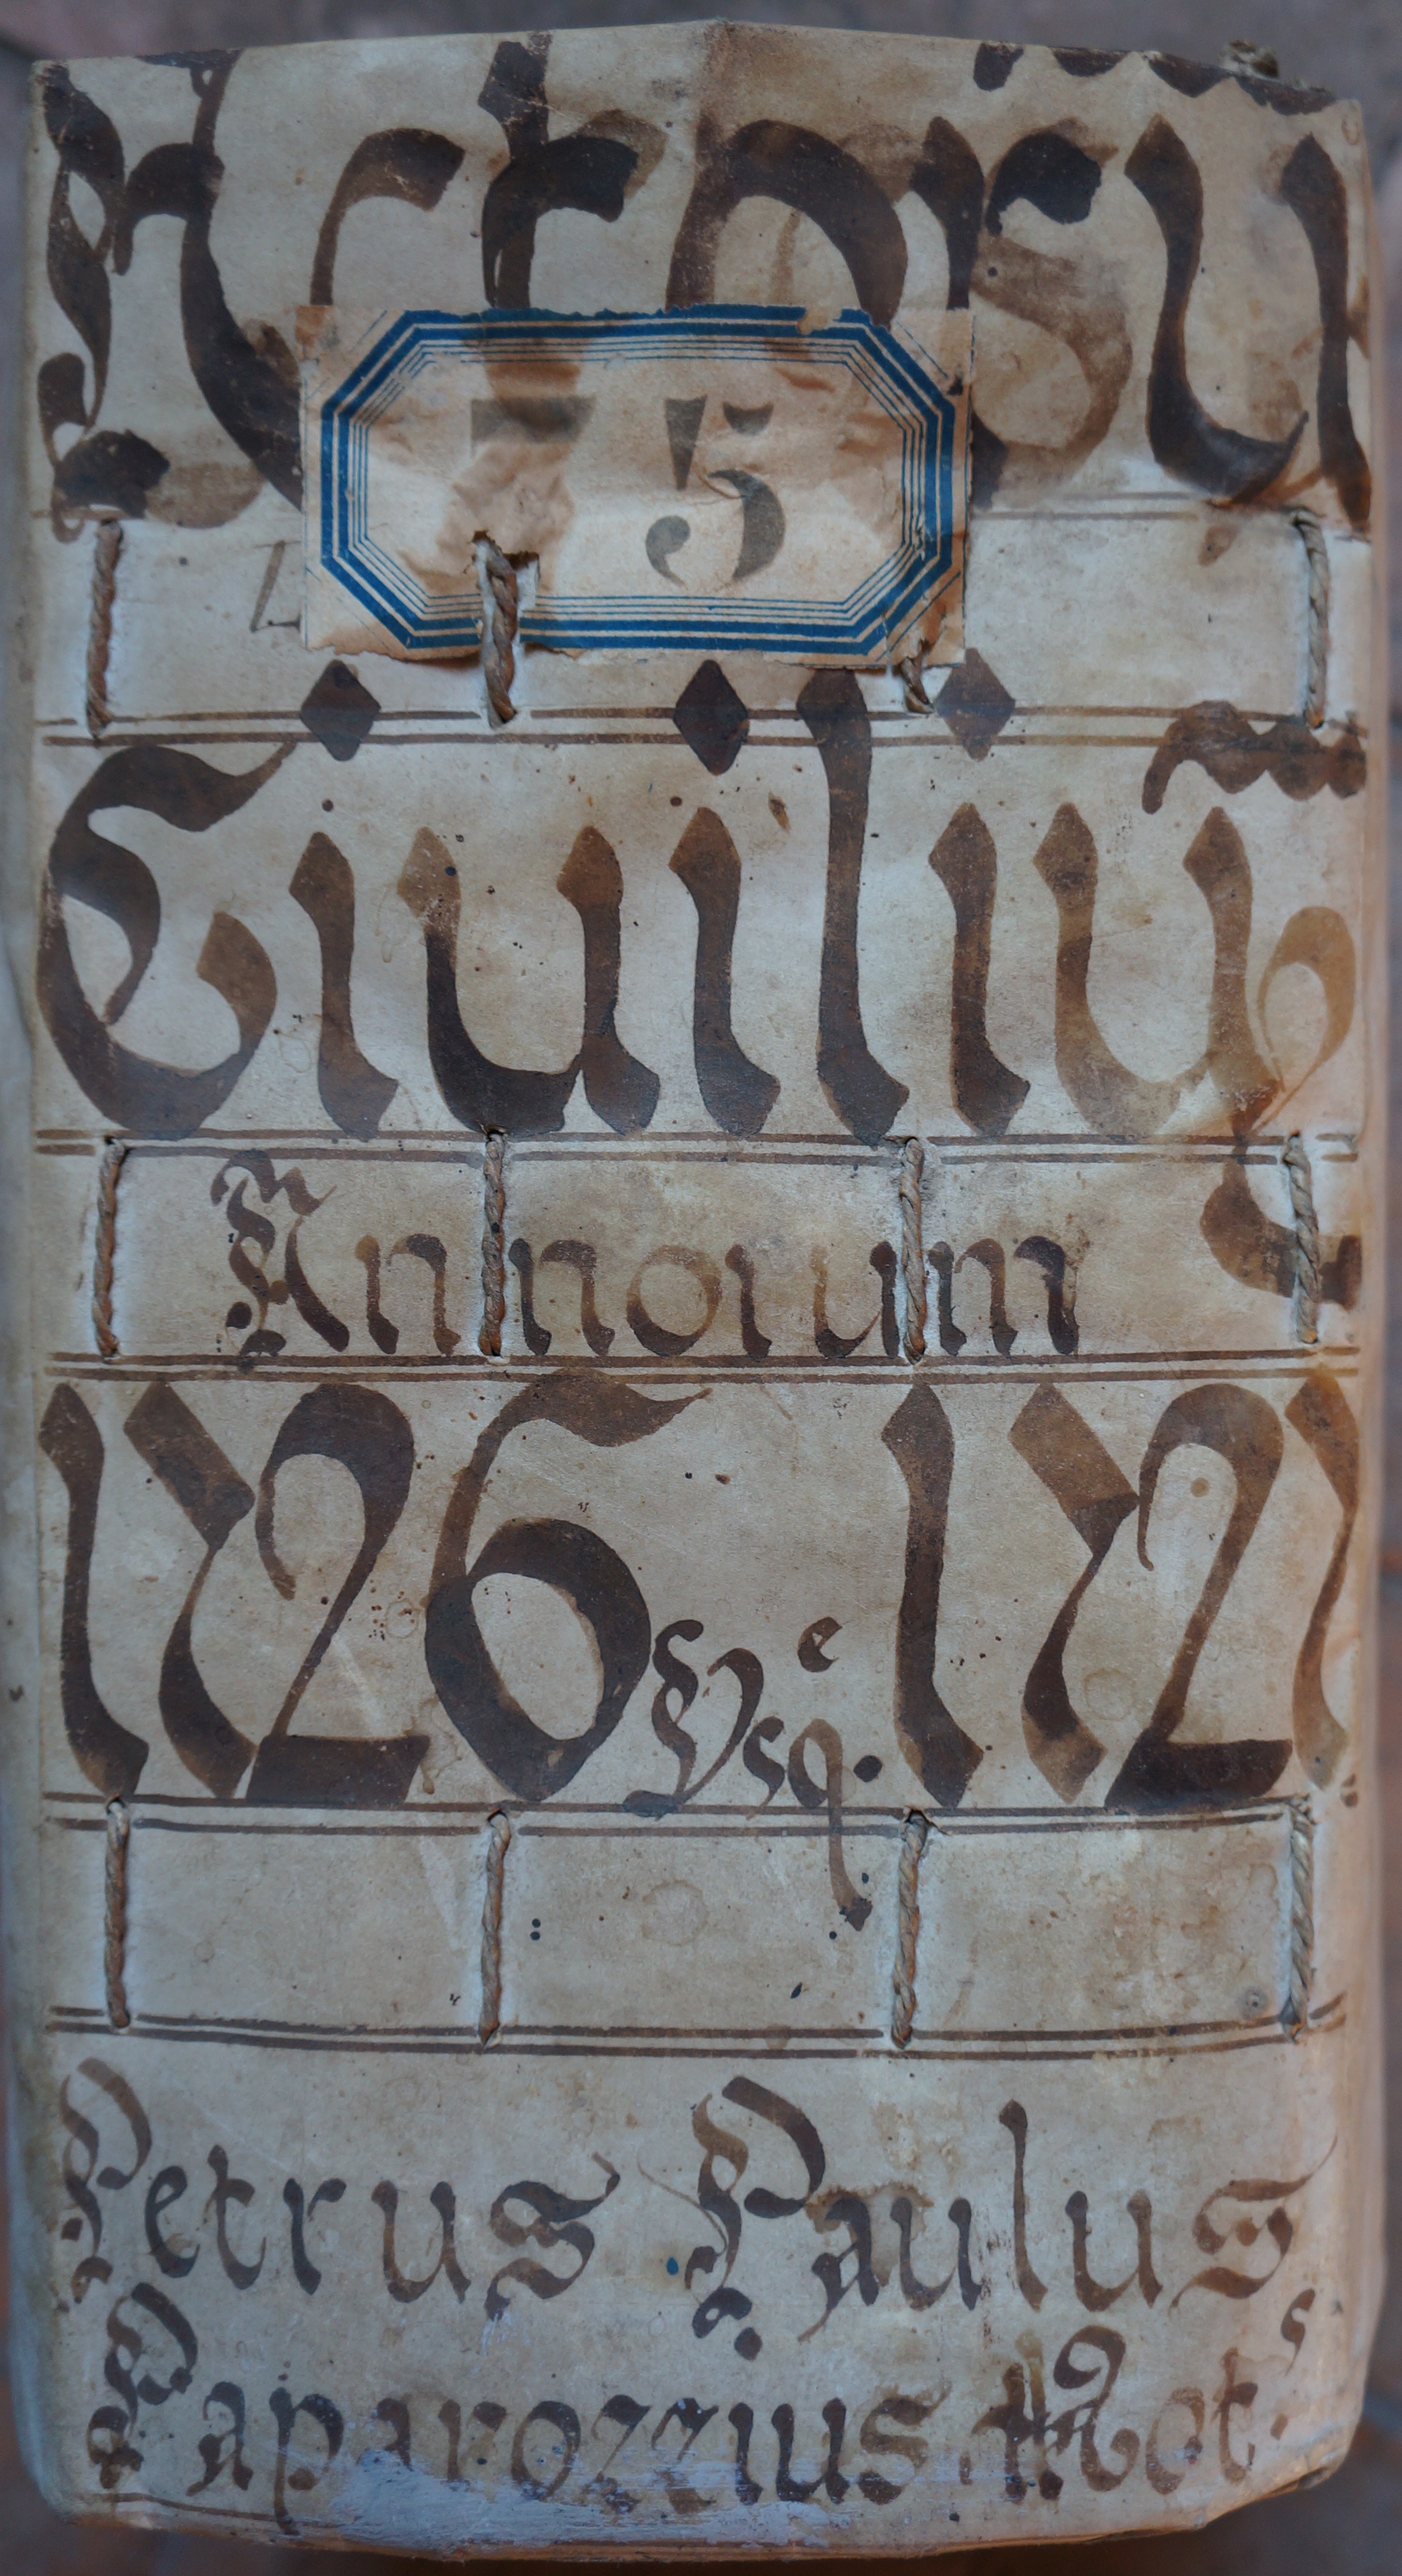 Actorū
75
Ciuiliū
Annorum
1726 Vsqe. 1727
Petrus Paulus
Paparozzius Nots.